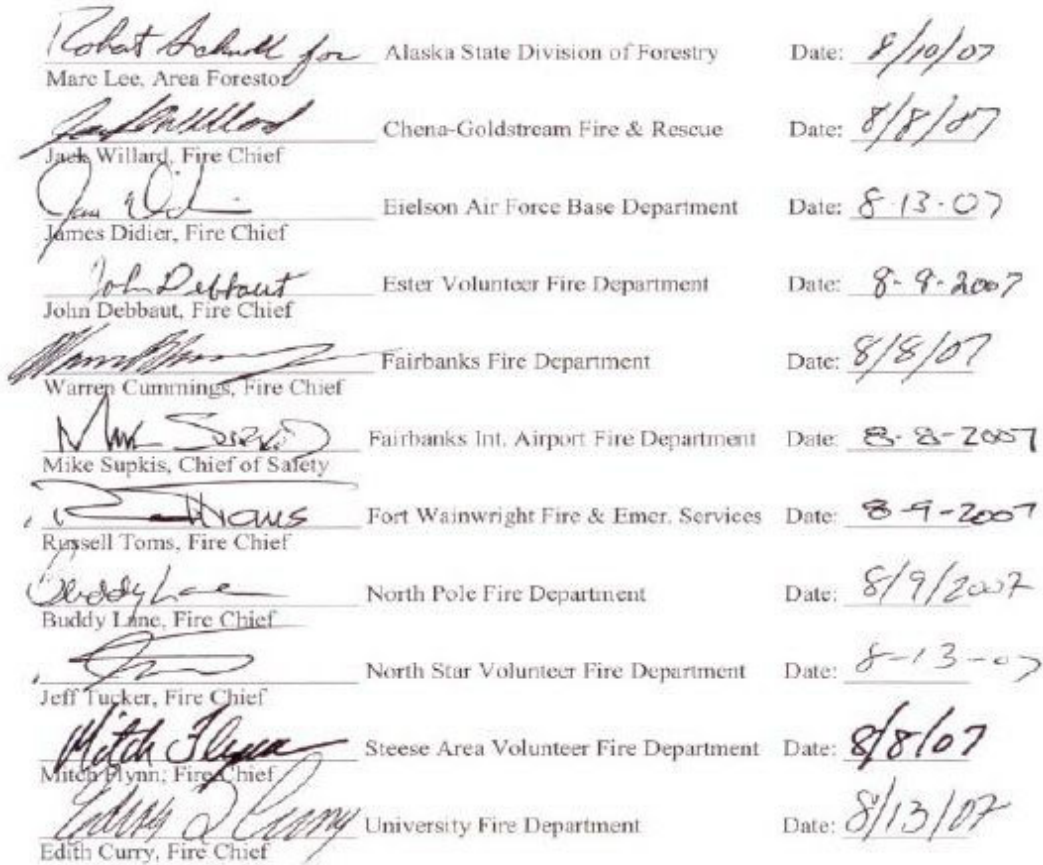 Robert Schmoll for Alaska State Division of Forestry Date: 8/10/07
Marc Lee, Area Forestor
Chena-Goldstream Fire & Rescue Date: 8/8/07
Jack Willard, Fire Chief
Eielson Air Force Base Department Date: 8-13-07
James Didier, Fire Chief
John Debbaut Ester Volunteer Fire Department Date: 8-9-2007
John Debbaut, Fire Chief
Fairbanks Fire Department Date: 8/8/07
Warren Cummings, Fire Chief
Fairbanks Int. Airport Fire Department Date: 8-8-2007
Mike Supkis, Chief of Safety
Fort Wainwright Fire & Emer. Services Date: 8-9-2007
Russell Toms, Fire Chief
Buddy Lane North Pole Fire Department Date: 8/9/2007
Buddy Lane, Fire Chief
North Star Volunteer Fire Department Date: 8-13-07
Jeff Tucker, Fire Chief
Mitch Flynn Steese Area Volunteer Fire Department Date: 8/8/07
Mitch Flynn, Fire Chief
University Fire Department Date: 8/13/07
Edith Curry, Fire Chief